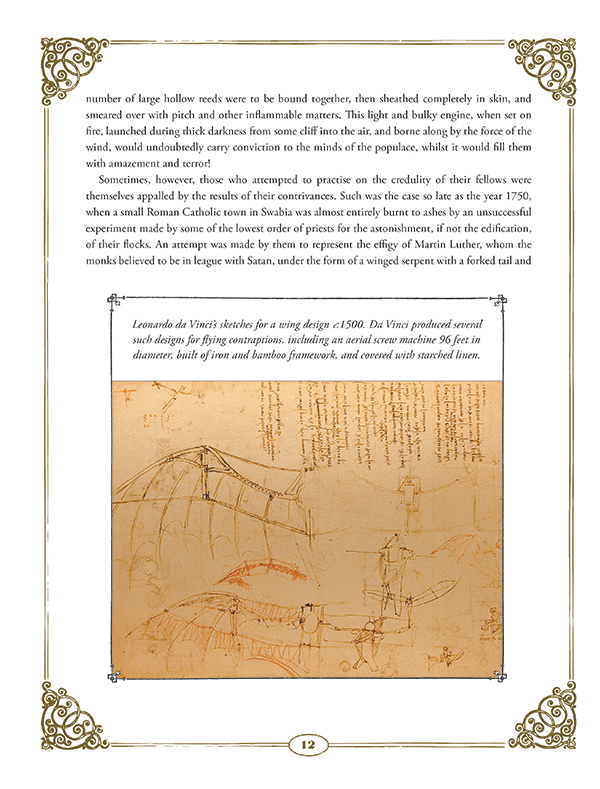 number of large hollow reeds were to be bound together, then sheathed completely in skin, and
smeared over with pitch and other inflammable matters. This light and bulky engine, when set on
fire, launched during thick darkness from some cliff into the air, and borne along by the force of the
wind, would undoubtedly carry conviction to the minds of the populace, whilst it would fill them
with amazement and terror!
Sometimes, however, those who attempted to practise on the credulity of their fellows were
themselves appalled by the results of their contrivances. Such was the case so late as the year 1750,
when a small Roman Catholic town in Swabia was almost entirely burnt to ashes by an unsuccessful
experiment made by some of the lowest order of priests for the astonishment, if not the edification,
of their flocks. An attempt was made by them to represent the effigy of Martin Luther, whom the
monks believed to be in league with Satan, under the form of a winged serpent with a forked tail and
Leonardo da Vinci's sketches for a wing design c:1500. Da Vinci produced several
such designs for flying contraptions, including an aerial screw machine 96 feet in
diameter, built of iron and bamboo framework, and covered with starched linen.
12